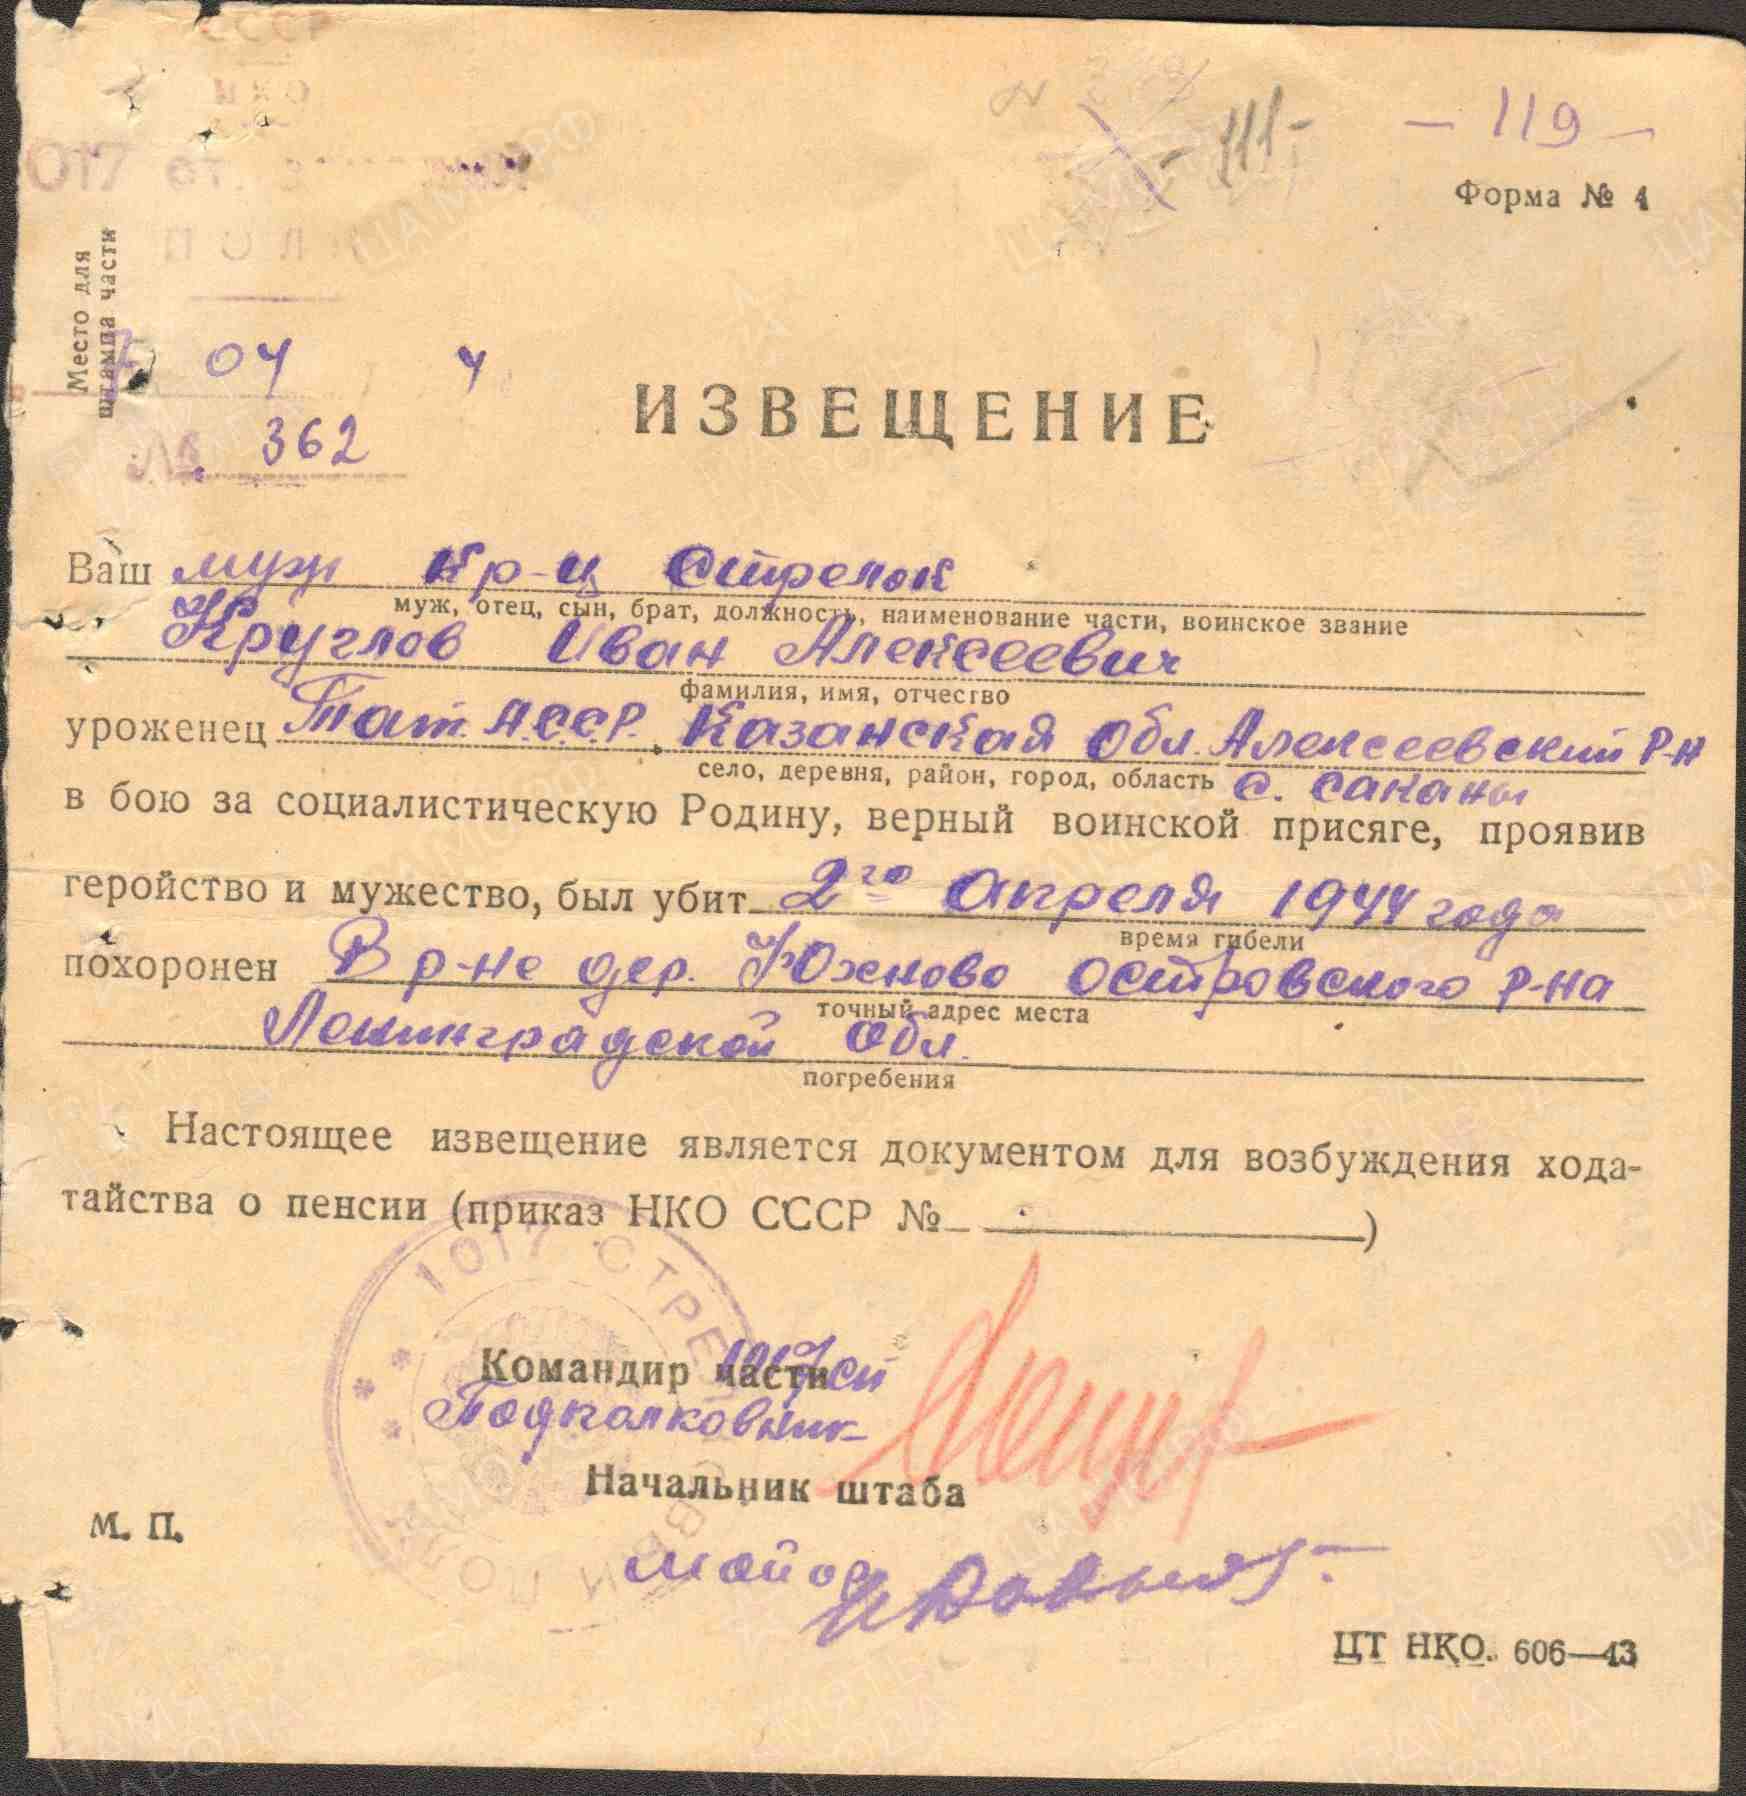 СССР
НКО
1017 ст
ПОЛК
Место для
штампа части
7 04 4
№ 362
- 111 -
- 119 -
Форма № 1
ИЗВЕЩЕНИЕ
Ваш муж кр-ц стрелок
муж, отец, сын, брат, должность, наименование части, воинское звание
Круглов Иван Алексеевич
фамилия, имя, отчество
уроженец Тат. А.С.С.Р. Казанская обл. Алексеевский р-н
село, деревня, район, город, область с. саканы
в бою за социалистическую Родину, верный воинской присяге, проявив
геройство и мужество, был убит 2го апреля 1944 года
время гибели
похоронен В р-не дер. Юхново островского р-на
точный адрес места
Ленинградской обл.
погребения
Настоящее извещение является документом для возбуждения хода-
тайства о пенсии (приказ НКО СССР № )
1017 СТРЕЛКОВЫЙ ПОЛК
Командир части 1017 сп
Подполковник
Начальник штаба
М. П.
майор
ЦТ НКО. 606—43